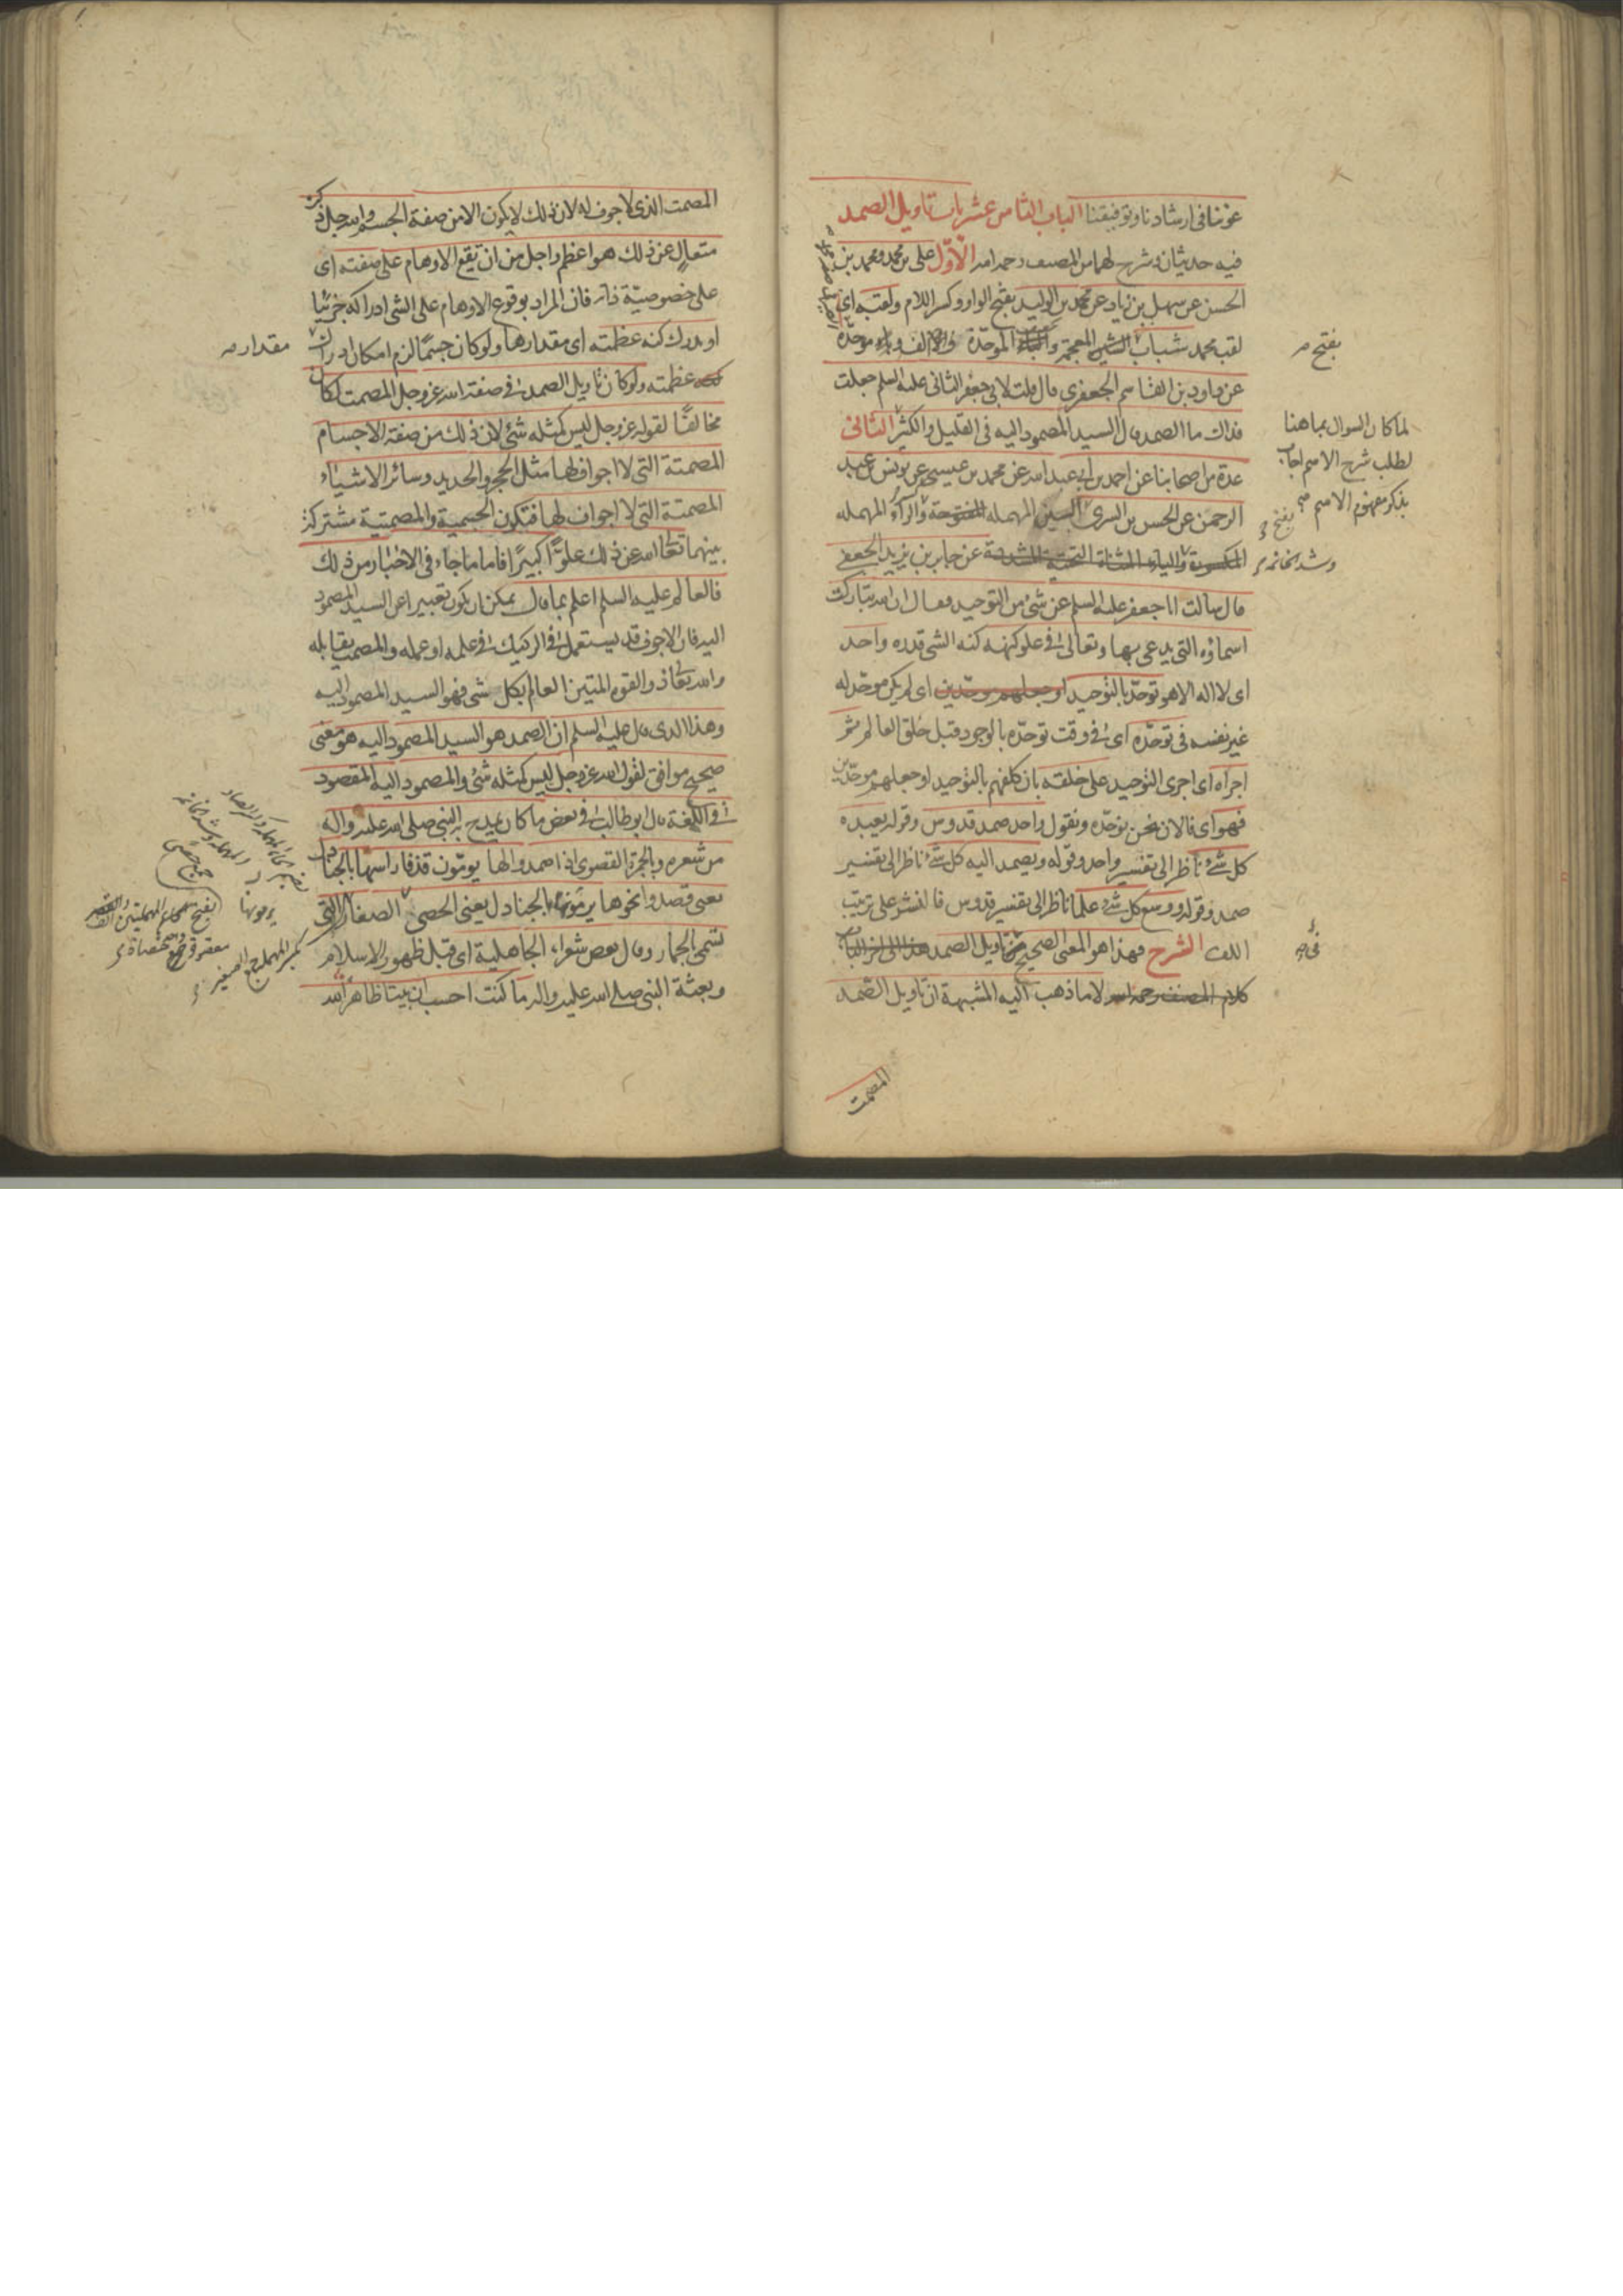 عوننا فى ارشادنا وتوفيقنا الباب الثامن عشر باب تاويل الصمد
فيه حديثان وشرح لهما من المصنف رحمه الله الاول على بن محمد ومحمد بن
الحسن عن سهل بن زياد عن محمد بن الوليد بفتح الواو وكسر اللام ولقبه اى
لقب محمد شباب الشين المعجمة والباء الموحدة والالف وباء موحدة
عن داود بن القاسم الجعفرى قال قلت لابى جعفر الثانى عليه السلم جعلت
فداك ما الصمد قال السيد المصمود اليه فى القليل والكثير الثانى
عدة من اصحابنا عن احمد بن ابى عبد الله عن محمد بن عيسى عن يونس بن عبد
الرحمن عن الحسن بن السرى السين المهملة المفتوحة والراء المهملة
المكسورة والياء المثناة التحتية المشددة عن جابر بن يزيد الجعفى
قال سالت ابا جعفر عليه السلم عن شئ من التوحيد فقال ان الله تباركت
اسماؤه التى يدعى بها وتعالى فى علو كنهه كنه الشى قدره واحد
اى لا اله الا هو توحد بالتوحيد اوجعلهم موحدين اى لم يكن موحد له
غير نفسه فى توحده اى فى وقت توحده بالوجود قبل خلق العالم ثم
اجراه اى اجرى التوحيد على خلقه بان كلفهم بالتوحيد او جعلهم موحدين
فهو اى فالان نحن نوحده ونقول واحد صمد قدوس وقوله يعبده
كل شئ ناظر الى تفسير واحد وقوله ويصمد اليه كل شئ ناظر الى تفسير
صمد وقوله ووسع كل شئ علما ناظر الى تفسير قدوس فالنشر على ترتيب
اللف الشرح فهذا هو المعنى الصحيح فى تاويل الصمد هذا الى اخر الباب
كلام المصنف رحمه الله لا ما ذهب اليه المشبهة ان تاويل الصمد
المصمت
بفتح
لما كان السوال بما هنا
لطلب شرح الاسم اجاب
بذكر مفهوم الاسم
بفتح
المصمت الذى لا جوف له لان ذلك لا يكون الا من صفة الجسم والله جل ذكره
متعال عن ذلك هو اعظم واجل من ان تقع الاوهام على صفته اى
على خصوصية ذاته فان المراد بوقوع الاوهام على الشى ادراكه جزئيا
او يدرك كنه عظمته اى مقدارها ولو كان جسما لزم امكان ادراك
عظمته ولو كان تاويل الصمد فى صفة الله عز وجل المصمت لكان
مخالفا لقوله عز وجل ليس كمثله شئ لان ذلك من صفة الاجسام
المصمتة التى لا اجواف لها مثل الحجر والحديد وسائر الاشياء
المصمتة التى لا اجواف لها فتكون الجسمية والمصمتية مشتركة
بينهما تعالى الله عن ذلك علوا كبيرا فاما ما جاء فى الاخبار من ذلك
فالعالم عليه السلم اعلم بما قال يمكن ان يكون تعبيرا عن السيد المصمود
اليه فان الاجوف قد يستعمل فى الركيك فى علمه او عمله والمصمت يقابله
والله تعالى ذو القوة المتين العالم بكل شى فهو السيد المصمود اليه
وهذا الذى قال عليه السلم ان الصمد هو السيد المصمود اليه هو معنى
صحيح موافق لقول الله عز وجل ليس كمثله شئ والمصمود اليه المقصود
فى اللغة قال ابو طالب فى بعض ما كان يمدح به النبى صلى الله عليه واله
من شعره وبالجمرة القصوى اذا صمدوا لها يؤمون قذفا راسها بالجنادل
يعنى قصدوا نحوها يرمونها بالجنادل يعنى الحصى الصغار التى
تسمى بالجمار وقال بعض شعراء الجاهلية اى قبل ظهور الاسلام
وبعثة النبى صلى الله عليه واله ما كنت احسب ان بيتا ظاهرا لله
مقدار